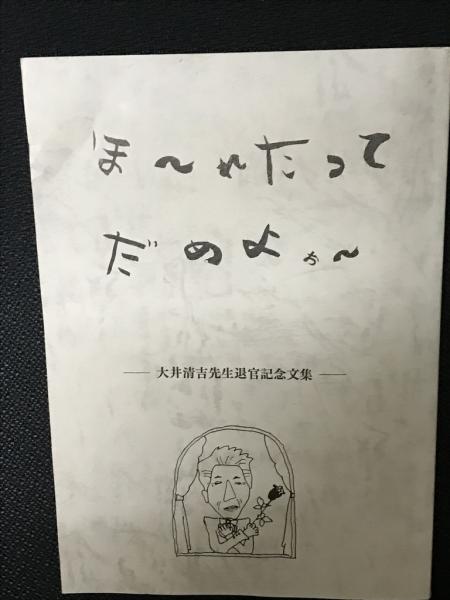 ほ〜れたって
だめよぉ〜
── 大井清吉先生退官記念文集 ──